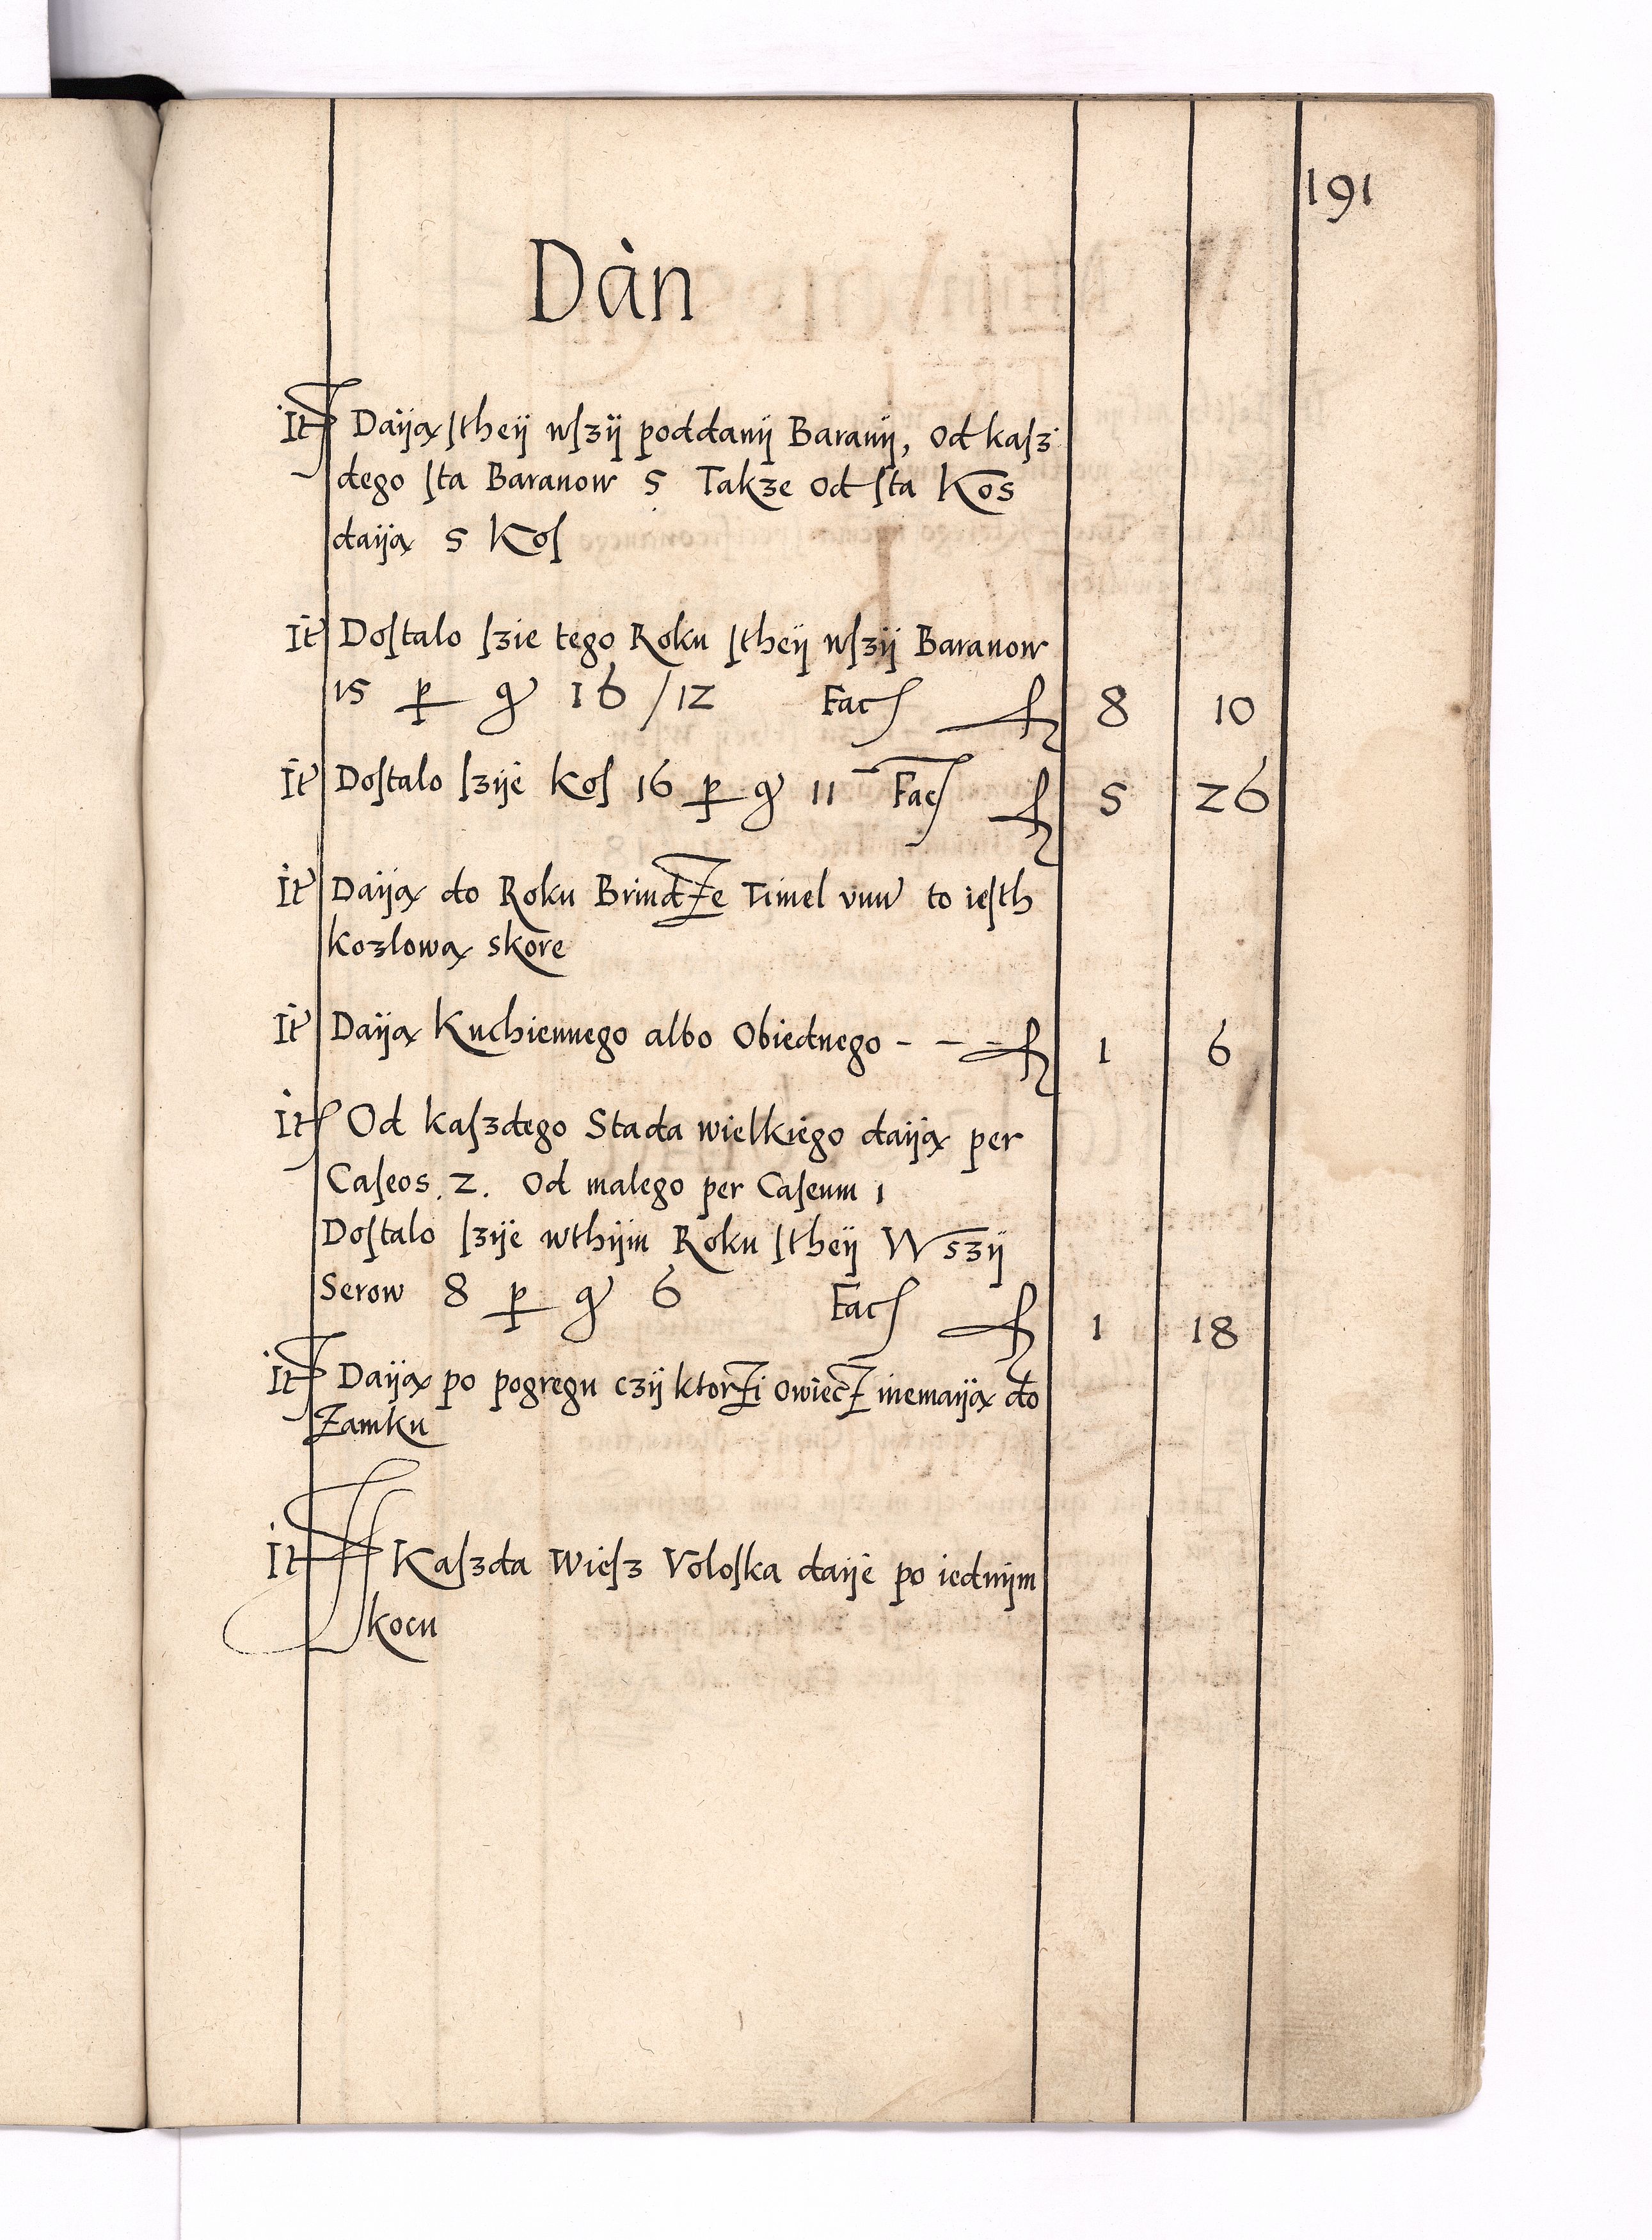 191
Dàn
It Daiją stheÿ wszÿ poddanÿ Baranÿ, Od kasz
dego sta Baranow 5 Takze Od sta Kos
daiją 5 Kos
It Dostalo szie tego Roku stheÿ wszÿ Baranow
15 p gr 16 /12 Fac fl 8 10
It Dostalo szÿe kos 16 p gr 11 Fac fl 5 26
It Daiją do Roku BrindZe Timel vnu to iesth
kozlową skore
It Daiją Kuchiennego albo Obiednego - - - fl 1 6
It Od kaszdego Stada wielkiego daiją per
Caseos. 2. Od malego per Caseum 1
Dostalo szÿe wthÿm Roku stheÿ Wszÿ
Serow 8 p gr 6 Fac fl 1 18
It Daiją po pogregu czÿ ktorZi OwiecZ niemaiją do
Zamku
It Kaszda Wiesz Voloska daiÿe po iednÿm
kocu